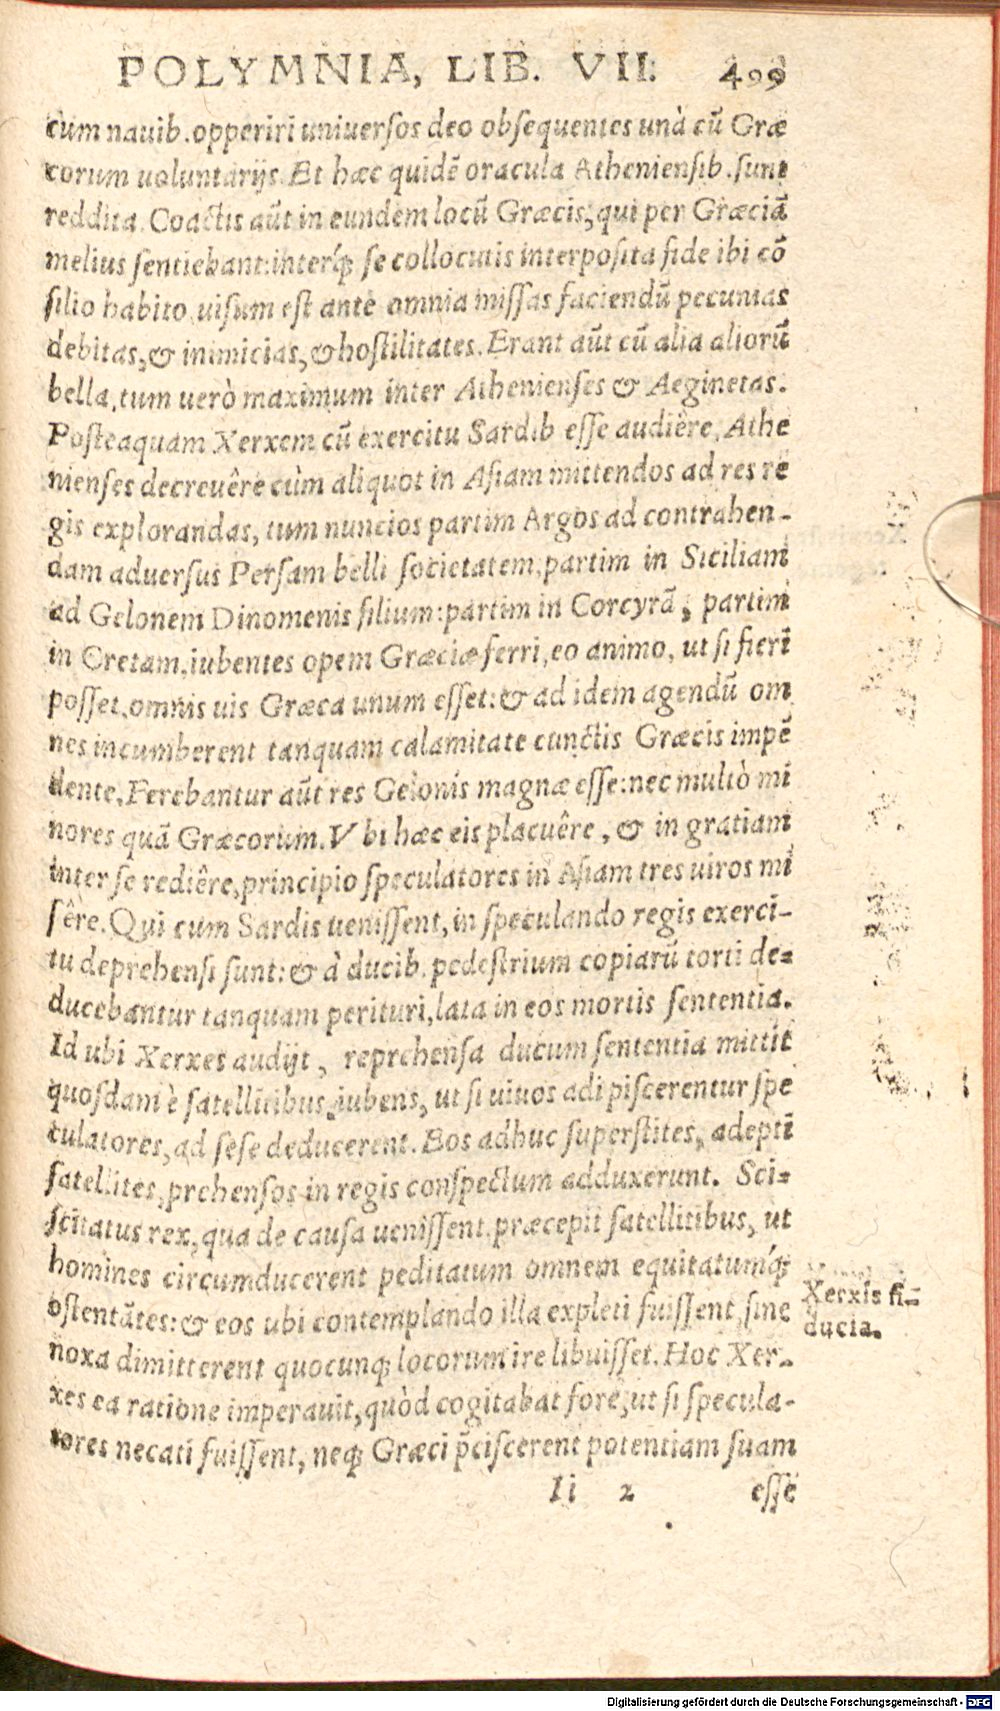 POLYMNIA, LIB. VII. 499
cum nauib. opperiri uniuersos deo obsequentes unà cū Græ
corum uoluntarijs. Et hæc quidē oracula Atheniensib. sunt
reddita. Coactis aūt in eundem locū Græcis, qui per Græciā
melius sentiebant: interq́; se collocutis interposita fide ibi cō
silio habito uisum est ante omnia missas faciendū pecunias
debitas, & inimicias, & hostilitates. Erant aūt cū alia aliorū
bella, tum uerò maximum inter Athenienses & Aeginetas.
Posteaquam Xerxem cū exercitu Sardib esse audiêre, Athe
nienses decreuêre cùm aliquot in Asiam mittendos ad res re
gis explorandas, tum nuncios partim Argos ad contrahen-
dam aduersus Persam belli societatem, partim in Siciliam
ad Gelonem Dinomenis filium: partim in Corcyrā, partim
in Cretam, iubentes opem Græciæ ferri, eo animo, ut si fieri
posset, omnis uis Græca unum esset: & ad idem agendū om
nes incumberent tanquam calamitate cunctis Græcis impē
dente. Ferebantur aūt res Gelonis magnæ esse: nec multò mi
nores quā Græcorum. Vbi hæc eis placuêre, & in gratiam
inter se rediêre, principio speculatores in Asiam tres uiros mi
sêre. Qui cum Sardis uenissent, in speculando regis exerci-
tu deprehensi sunt: & à ducib. pedestrium copiarū torti de-
ducebantur tanquam perituri, lata in eos mortis sententia.
Id ubi Xerxes audijt, reprehensa ducum sententia mittit
quosdam è satellitibus, iubens, ut si uiuos adipiscerentur spe
culatores, ad sese deducerent. Eos adhuc superstites, adepti
satellites, prehensos in regis conspectum adduxerunt. Sci-
scitatus rex, qua de causa uenissent, præcepit satellitibus, ut
homines circumducerent peditatum omnem equitatumq́;
ostentātes: & eos ubi contemplando illa expleti fuissent, sine
noxa dimitterent quocunq; locorum ire libuisset. Hoc Xer-
xes ea ratione imperauit, quòd cogitabat fore, ut si specula-
tores necati fuissent, neq; Græci p̄ciscerent potentiam suam
Ii 2 esse
Xerxis fi-
ducia.
Digitalisierung gefördert durch die Deutsche Forschungsgemeinschaft - DFG